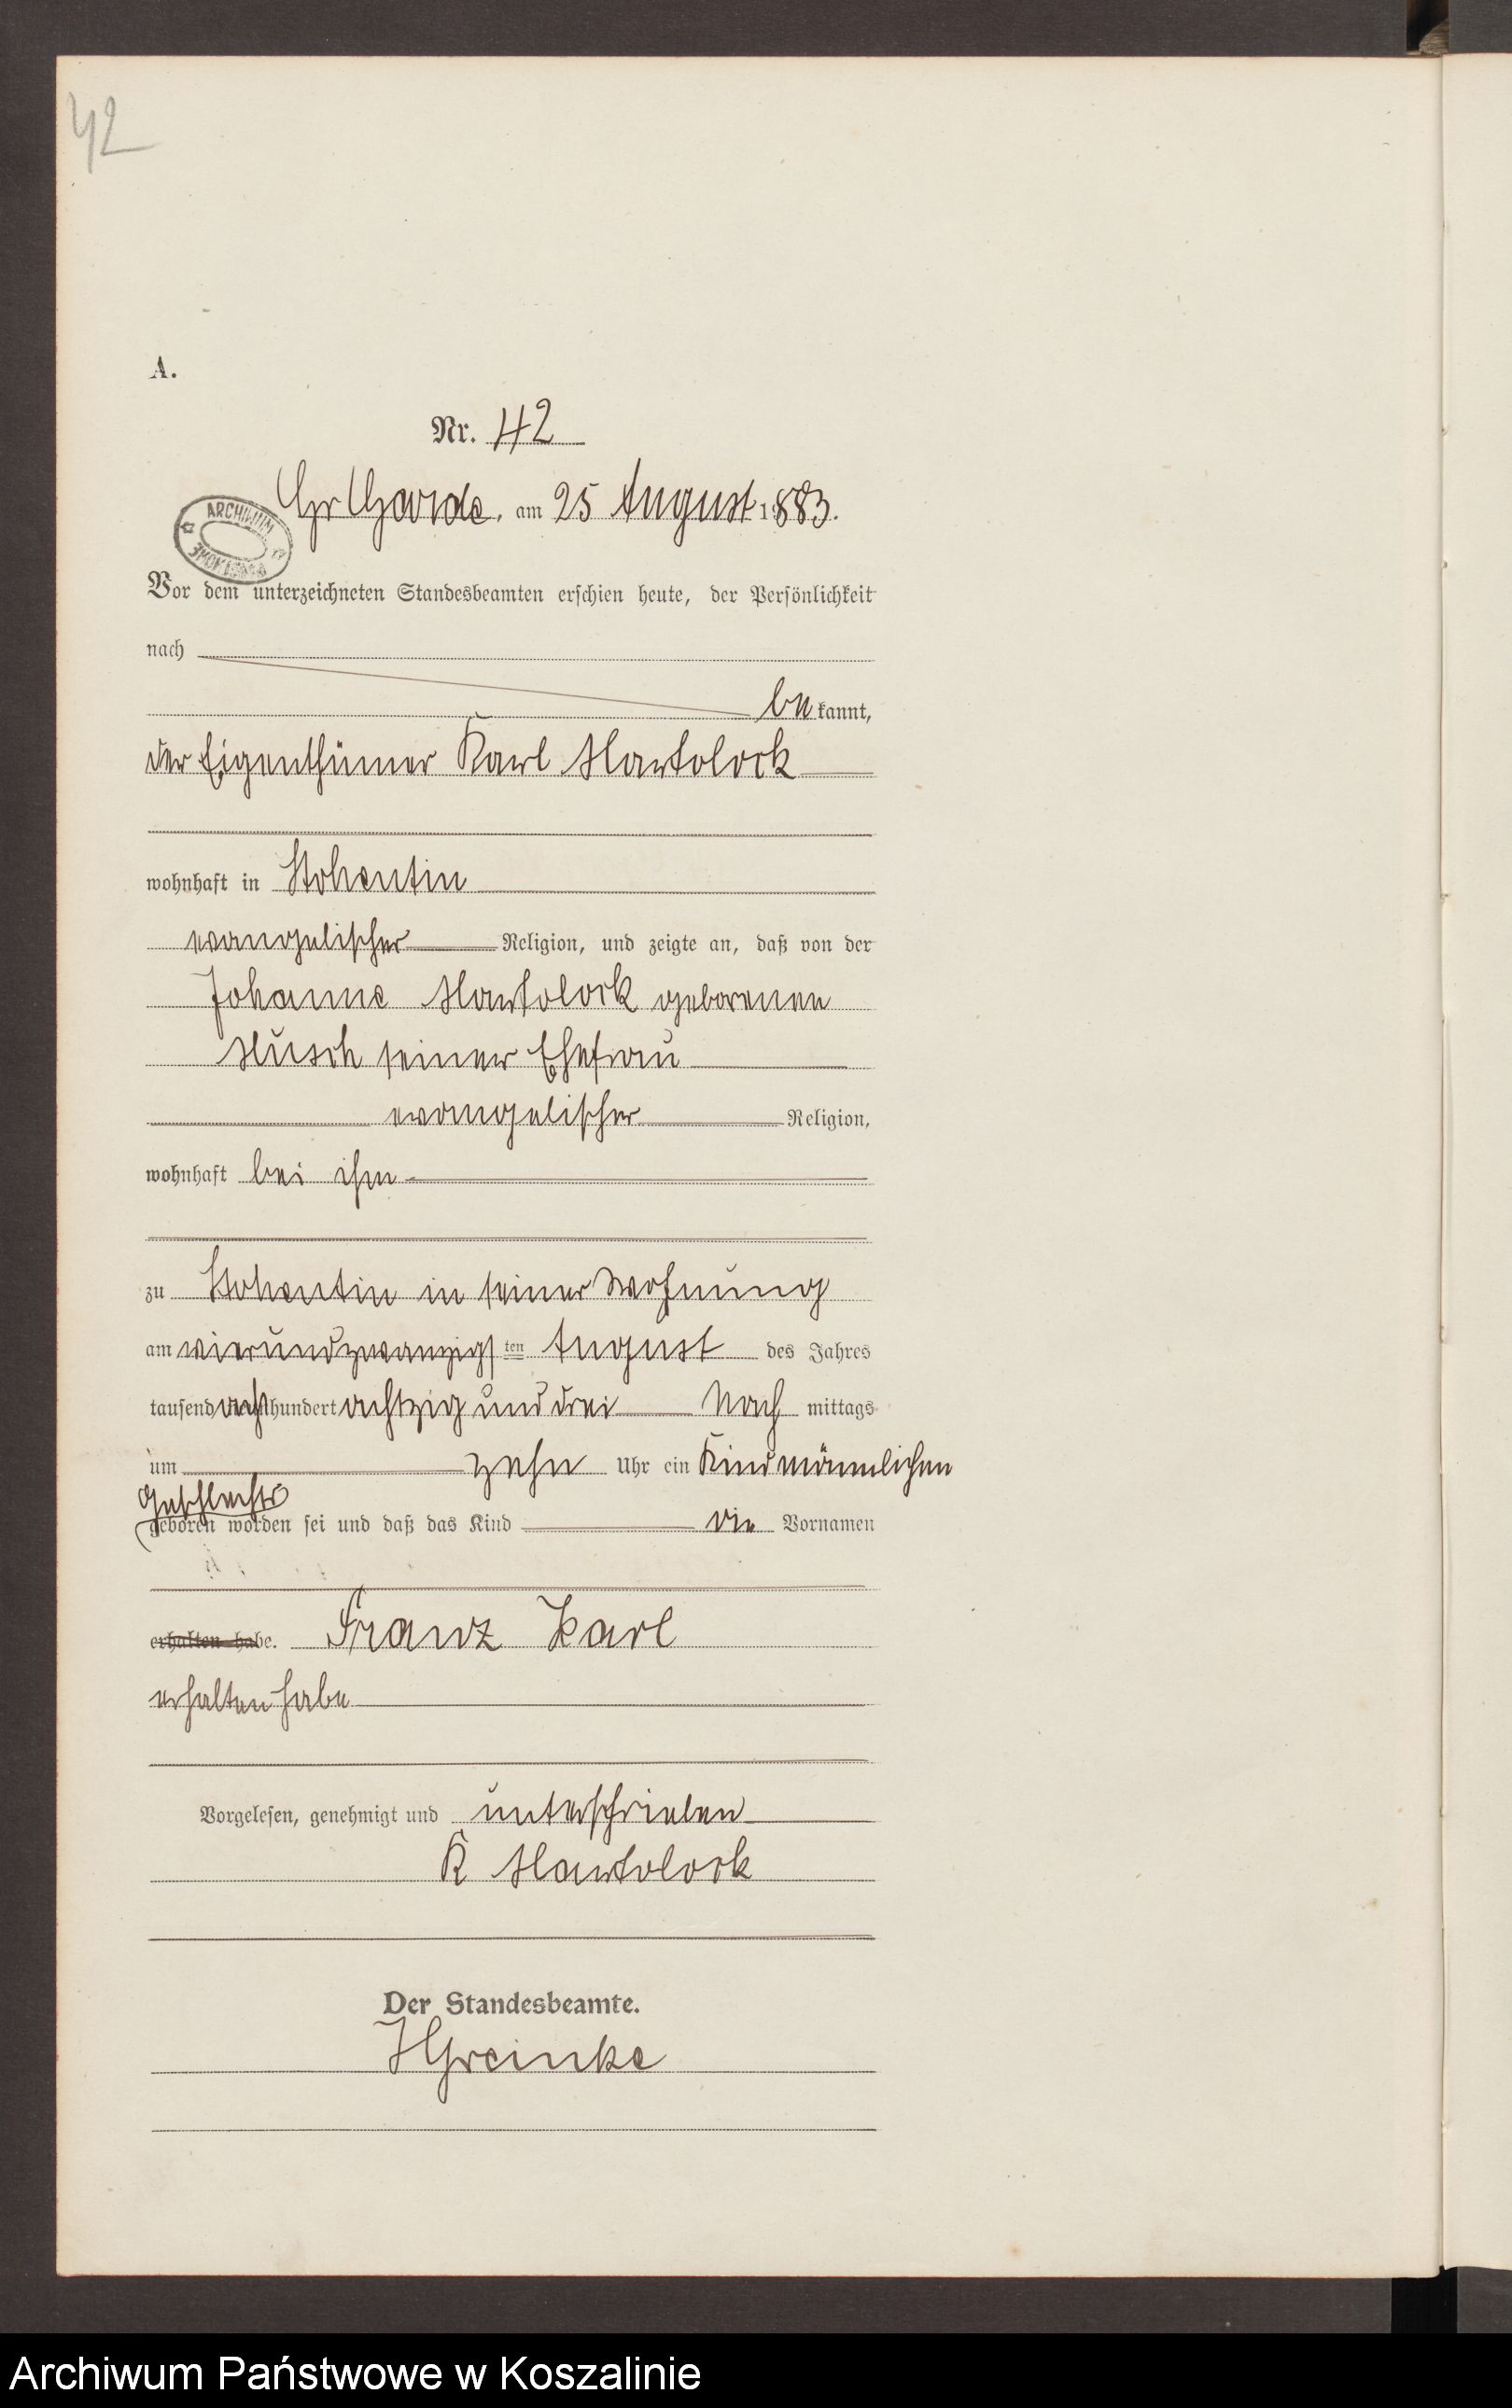 42
A.
Nr. 42
ARCHIWUM
Gr Garde, am 25 August 1883.
Vor dem unterzeichneten Standesbeamten erschien heute, der Persönlichkeit
nach
be kannt,
der Eigenthümer Karl
wohnhaft in Stohentin
evangelischer Religion, und zeigte an, daß von der
Johanne geborenen
seiner Ehefrau
evangelischer Religion,
wohnhaft bei ihm
zu Stohentin in seiner Wohnung
am vierundzwanzigsten August des Jahres
tausend acht hundert achtzig und drei Nach mittags
um zehn Uhr ein Kind männlichen
Geschlechts
geboren worden sei und daß das Kind die Vornamen
erhalten habe. Franz Karl
erhalten habe
Vorgelesen, genehmigt und unterschrieben
K
Der Standesbeamte.
HGreinke
Archiwum Państwowe w Koszalinie